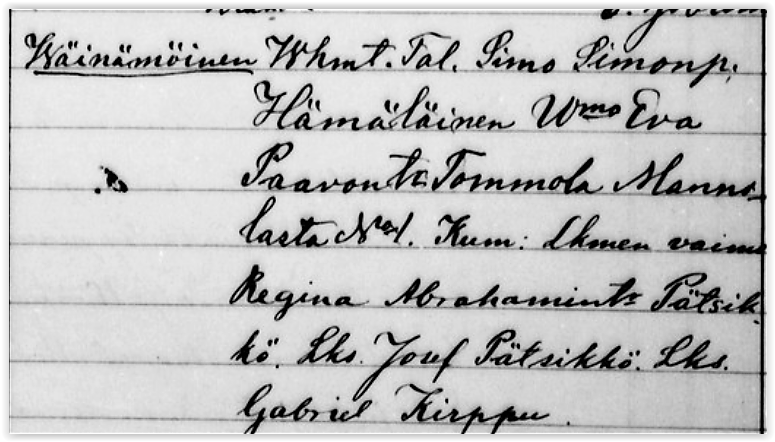 Wäinämöinen Whmt. Tal. Simo Simonp.
Hämäläinen Wmo Eva
Paavont: Tommola Manns-
lasta No 1. Kum: Lkmen vaimo
Regina Abrahamint: Pätsik-
kö. Lks. Josef Pätsikkö. Lks.
Gabriel Kirppu.